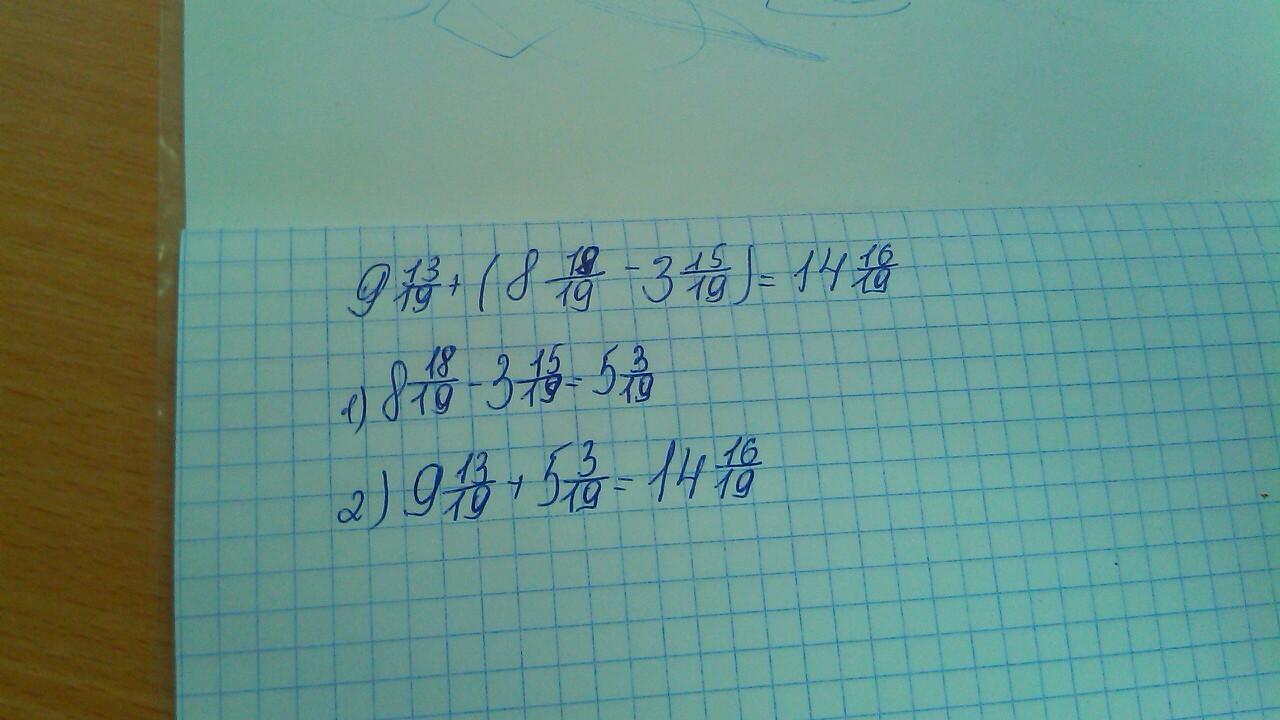 9 13/19 + (8 18/19 - 3 15/19) = 14 16/19
1) 8 18/19 - 3 15/19 = 5 3/19
2) 9 13/19 + 5 3/19 = 14 16/19